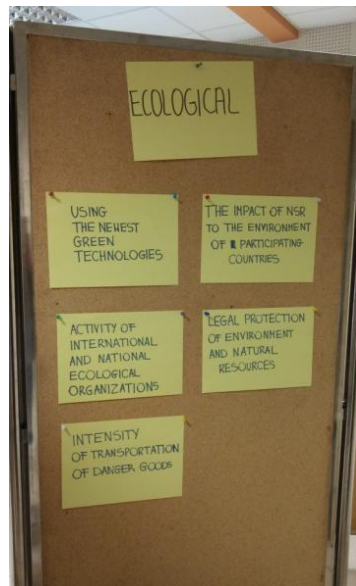 ECOLOGICAL
USING
THE NEWEST
GREEN
TECHNOLOGIES
THE IMPACT OF NSR
TO THE ENVIRONMENT
OF PARTICIPATING
COUNTRIES
ACTIVITY OF
INTERNATIONAL
AND NATIONAL
ECOLOGICAL
ORGANIZATIONS
LEGAL PROTECTION
OF ENVIRONMENT
AND NATURAL
RESOURCES
INTENSITY
OF TRANSPORTATION
OF DANGER GOODS